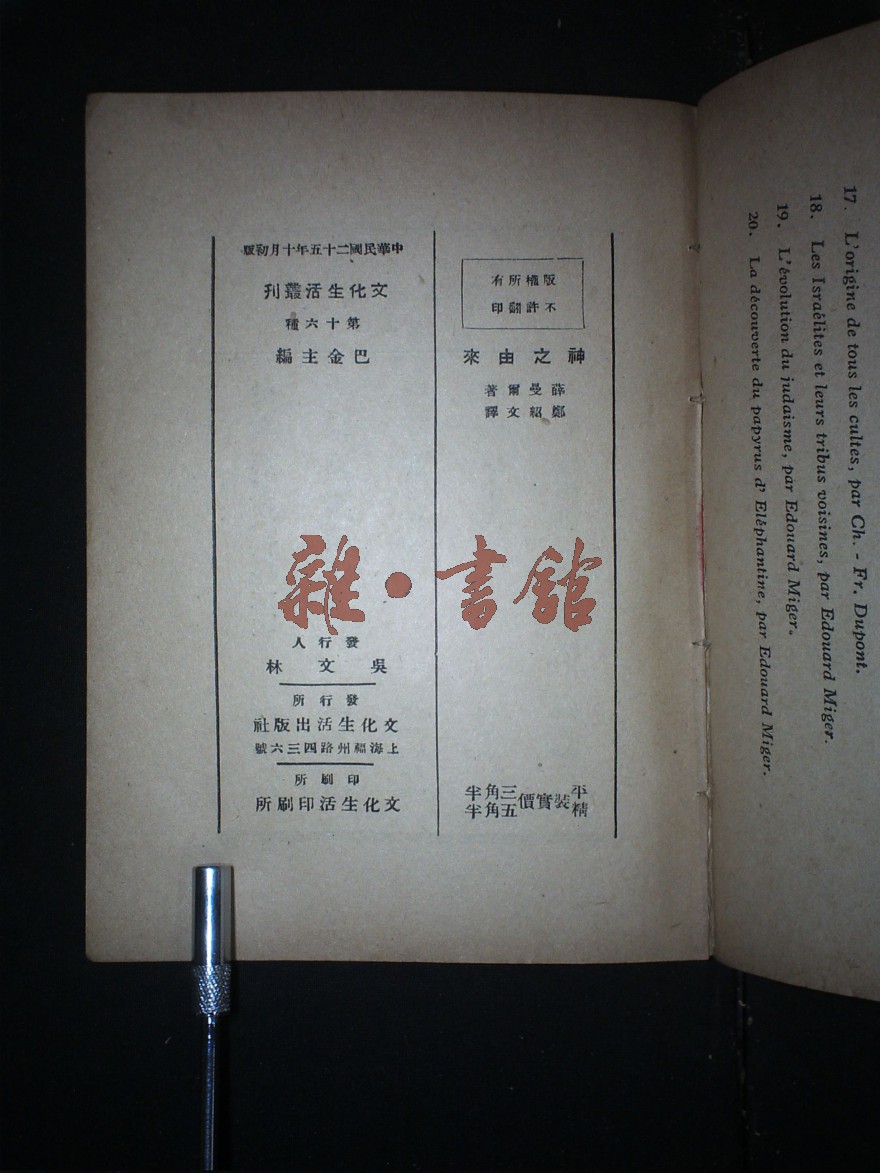 版權所有
不許翻印
神之由來
薛曼爾著
鄭紹文譯
平精裝實價三角半
五角半
中華民國二十五年十月初版
文化生活叢刊
第十六種
巴金主編
發行人
吳文林
發行所
文化生活出版社
上海福州路四三六號
印刷所
文化生活印刷所
雜•書館
17. L'origine de tous les cultes, par Ch. - Fr. Dupont.
18. Les Israélites et leurs tribus voisines, par Edouard Miger.
19. L'évolution du judaisme, par Edouard Miger.
20. La découverte du papyrus d' Eléphantine, par Edouard Miger.